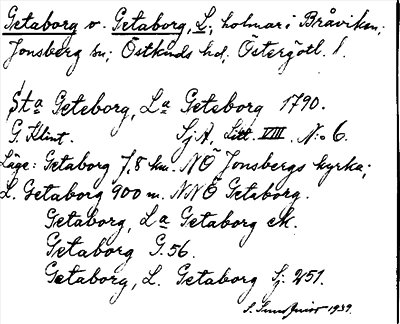 Getaborg o. Getaborg, L., holmar i Bråviken;
Jonsberg sn; Östkinds hd. Östergötl. l.
St:a Geteborg, L:a Geteborg 1790.
G. Klint. Sj A. Litt. VIII. N:o 6.
Läge: Getaborg 7,8 km. NÖ Jonsbergs kyrka;
L. Getaborg 900 m. NNÖ Getaborg.
Getaborg, L:a Getaborg eK.
Getaborg G. 56.
Getaborg, L. Getaborg Sj. 251.
1939.